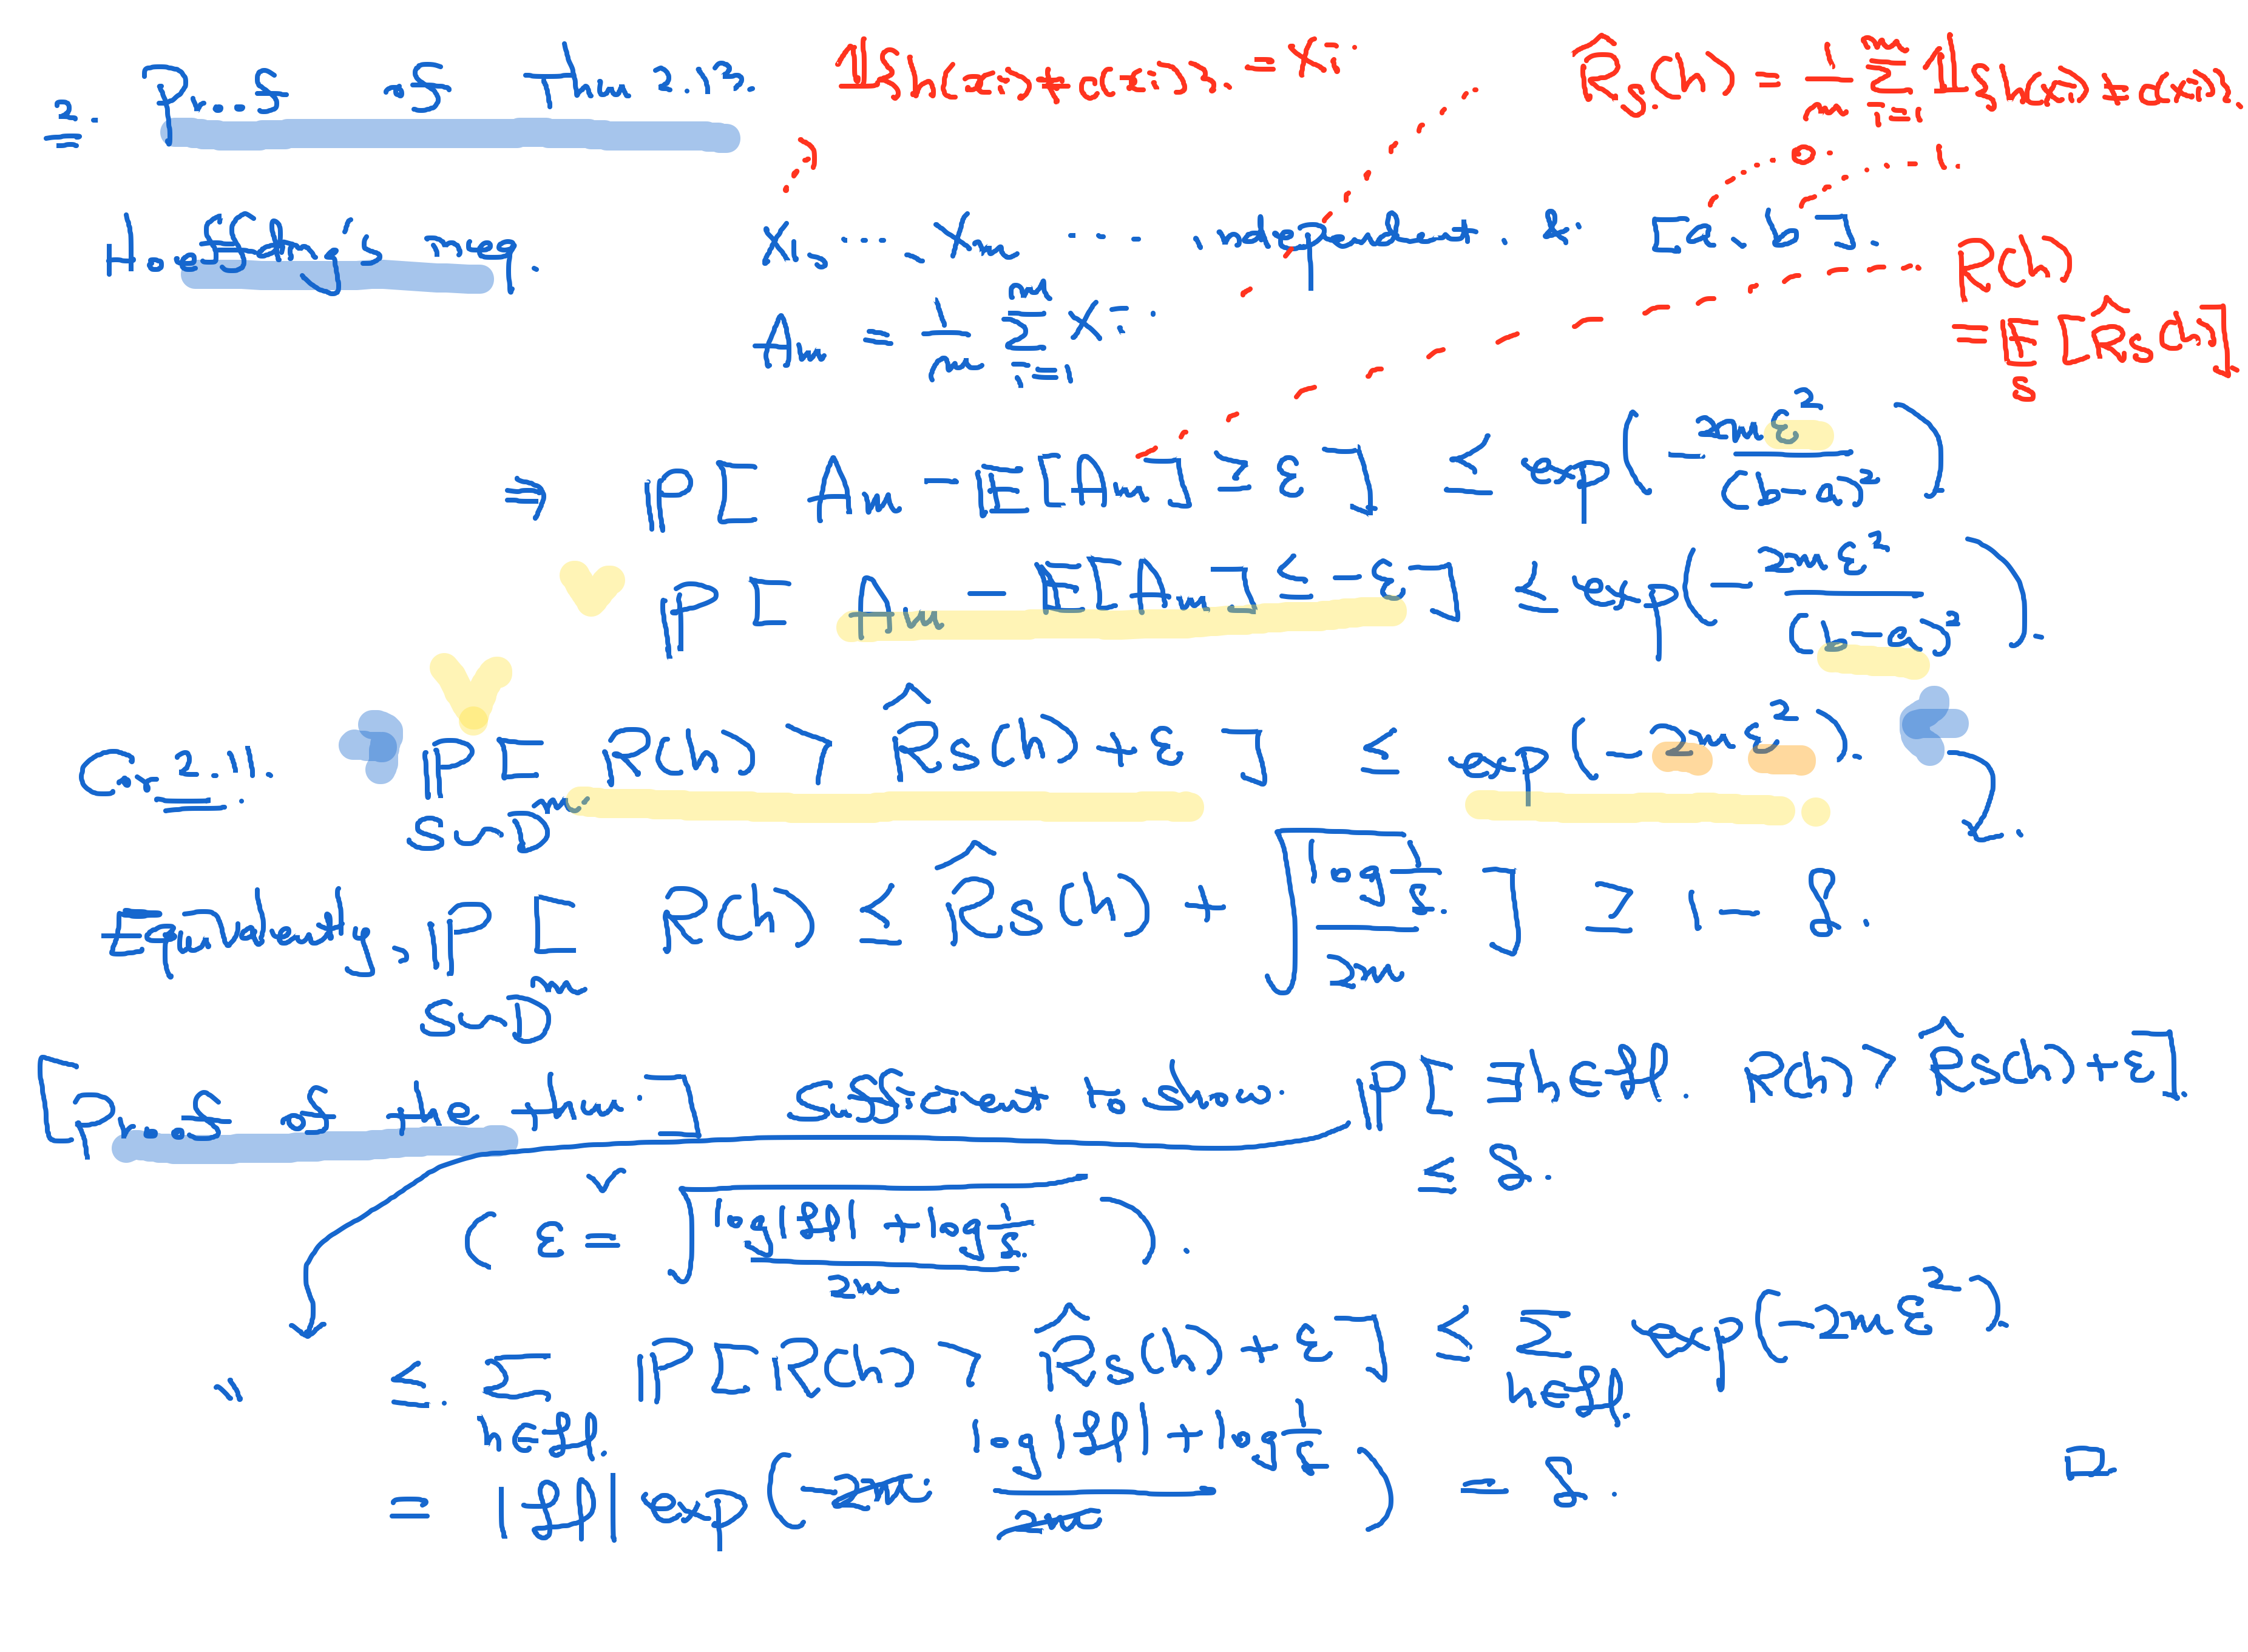 2. Proof of Thm 2.13. 𝟙{h(xi)≠c(xi)}. = Xi. R̂_S(h) = 1/m Σ_{i=1}^m 𝟙{h(xi)≠c(xi)}.
0. 1.
Hoeffding's ineq. X1, ... , Xm ... independent. & [a, b].
R(h)
= E_S [R̂_S(h)]
Am = 1/m Σ_{i=1}^m Xi.
⇒ P[ Am - E[Am] ≥ ε ] ≤ exp( - 2mε² / (b-a)² )
P[ Am - E[Am] ≤ -ε ] ≤ exp( - 2mε² / (b-a)² ).
Cor 2.11. P_{S~D^m} [ R(h) > R̂_S(h) + ε ] ≤ exp(-2mε²).
Equivalently, P_{S~D^m} [ R(h) ≤ R̂_S(h) + √( log 1/δ / 2m ) ] ≥ 1 - δ.
[Proof of the thm.] Sufficient to show. P[ ∃h∈H. R(h) > R̂_S(h) + ε ].
≤ δ.
( ε = √( log|H| + log 1/δ / 2m ) ).
" ≤ Σ_{h∈H} P[ R(h) > R̂_S(h) + ε ] ≤ Σ_{h∈H} exp(-2mε²).
= |H| exp( -2m · log|H| + log 1/δ / 2m ) = δ. □